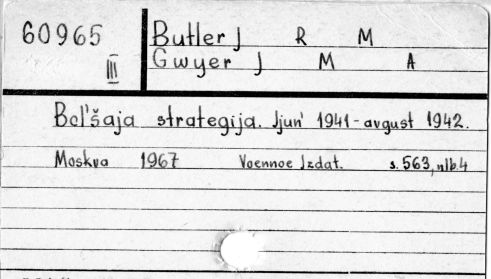 60965 Butler J R M
III Gwyer J M A
Bol'šaja strategija. Ijun' 1941-avgust 1942.
Moskva 1967 Voennoe Izdat. s. 563, nlb. 4